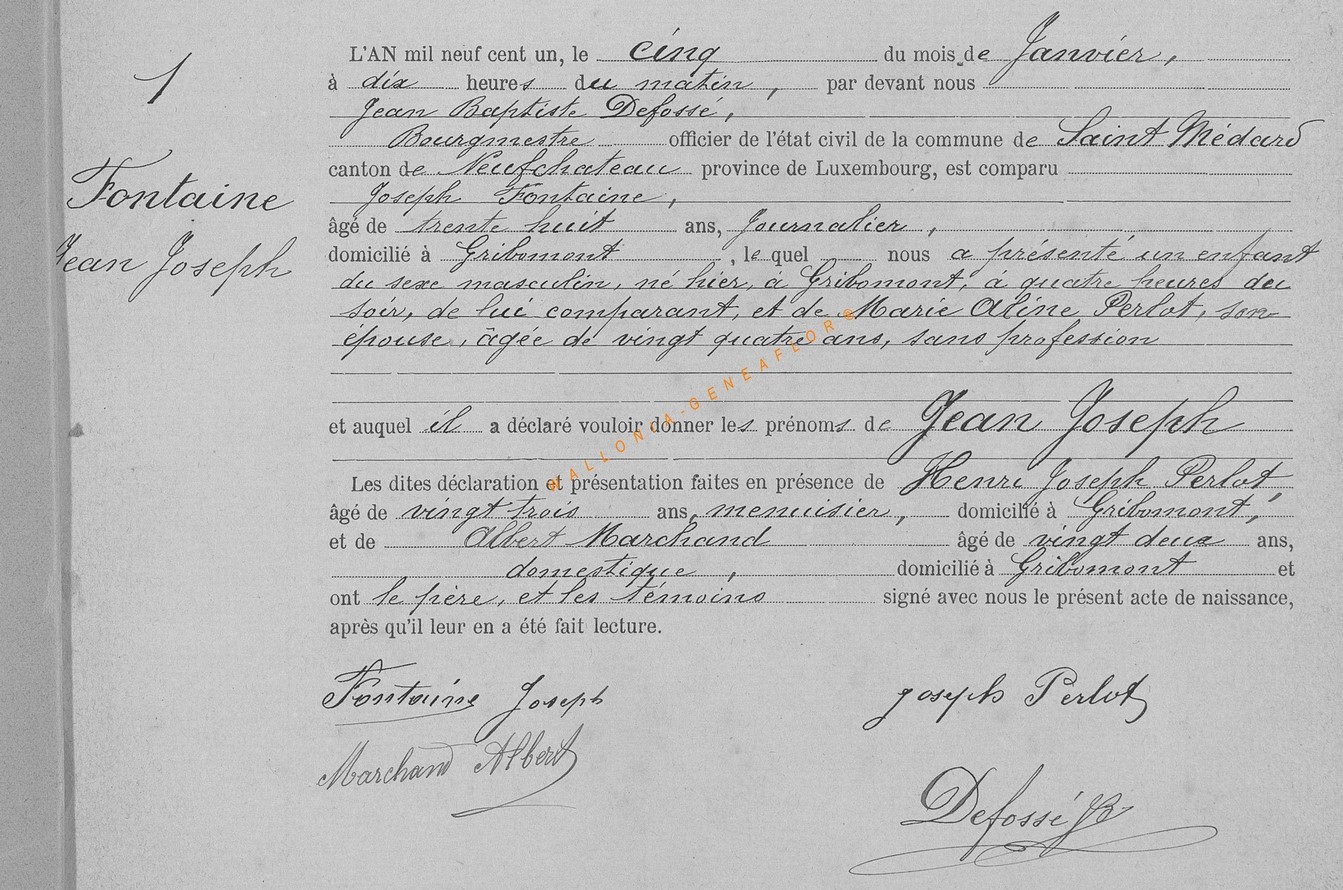 1
Fontaine
Jean Joseph
L'AN mil neuf cent un, le cinq du mois de Janvier,
à dix heures du matin, par devant nous
Jean Baptiste Defossé,
Bourgmestre officier de l'état civil de la commune de Saint Médard
canton de Neufchateau province de Luxembourg, est comparu
Joseph Fontaine,
âgé de trente huit ans, Journalier,
domicilié à Gribomont, le quel nous a présenté un enfant
du sexe masculin, né hier, à Gribomont, à quatre heures du
soir, de lui comparant, et de Marie Aline Perlot, son
épouse, âgée de vingt quatre ans, sans profession
et auquel il a déclaré vouloir donner les prénoms de Jean Joseph
Les dites déclaration et présentation faites en présence de Henri Joseph Perlot,
âgé de vingt trois ans, menuisier, domicilié à Gribomont,
et de Albert Marchand âgé de vingt deux ans,
domestique, domicilié à Gribomont et
ont le père, et les témoins signé avec nous le présent acte de naissance,
après qu'il leur en a été fait lecture.
Fontaine Joseph
Joseph Perlot
Marchand Albert
Defossé JB
WALLONIA-GENEAFLORE